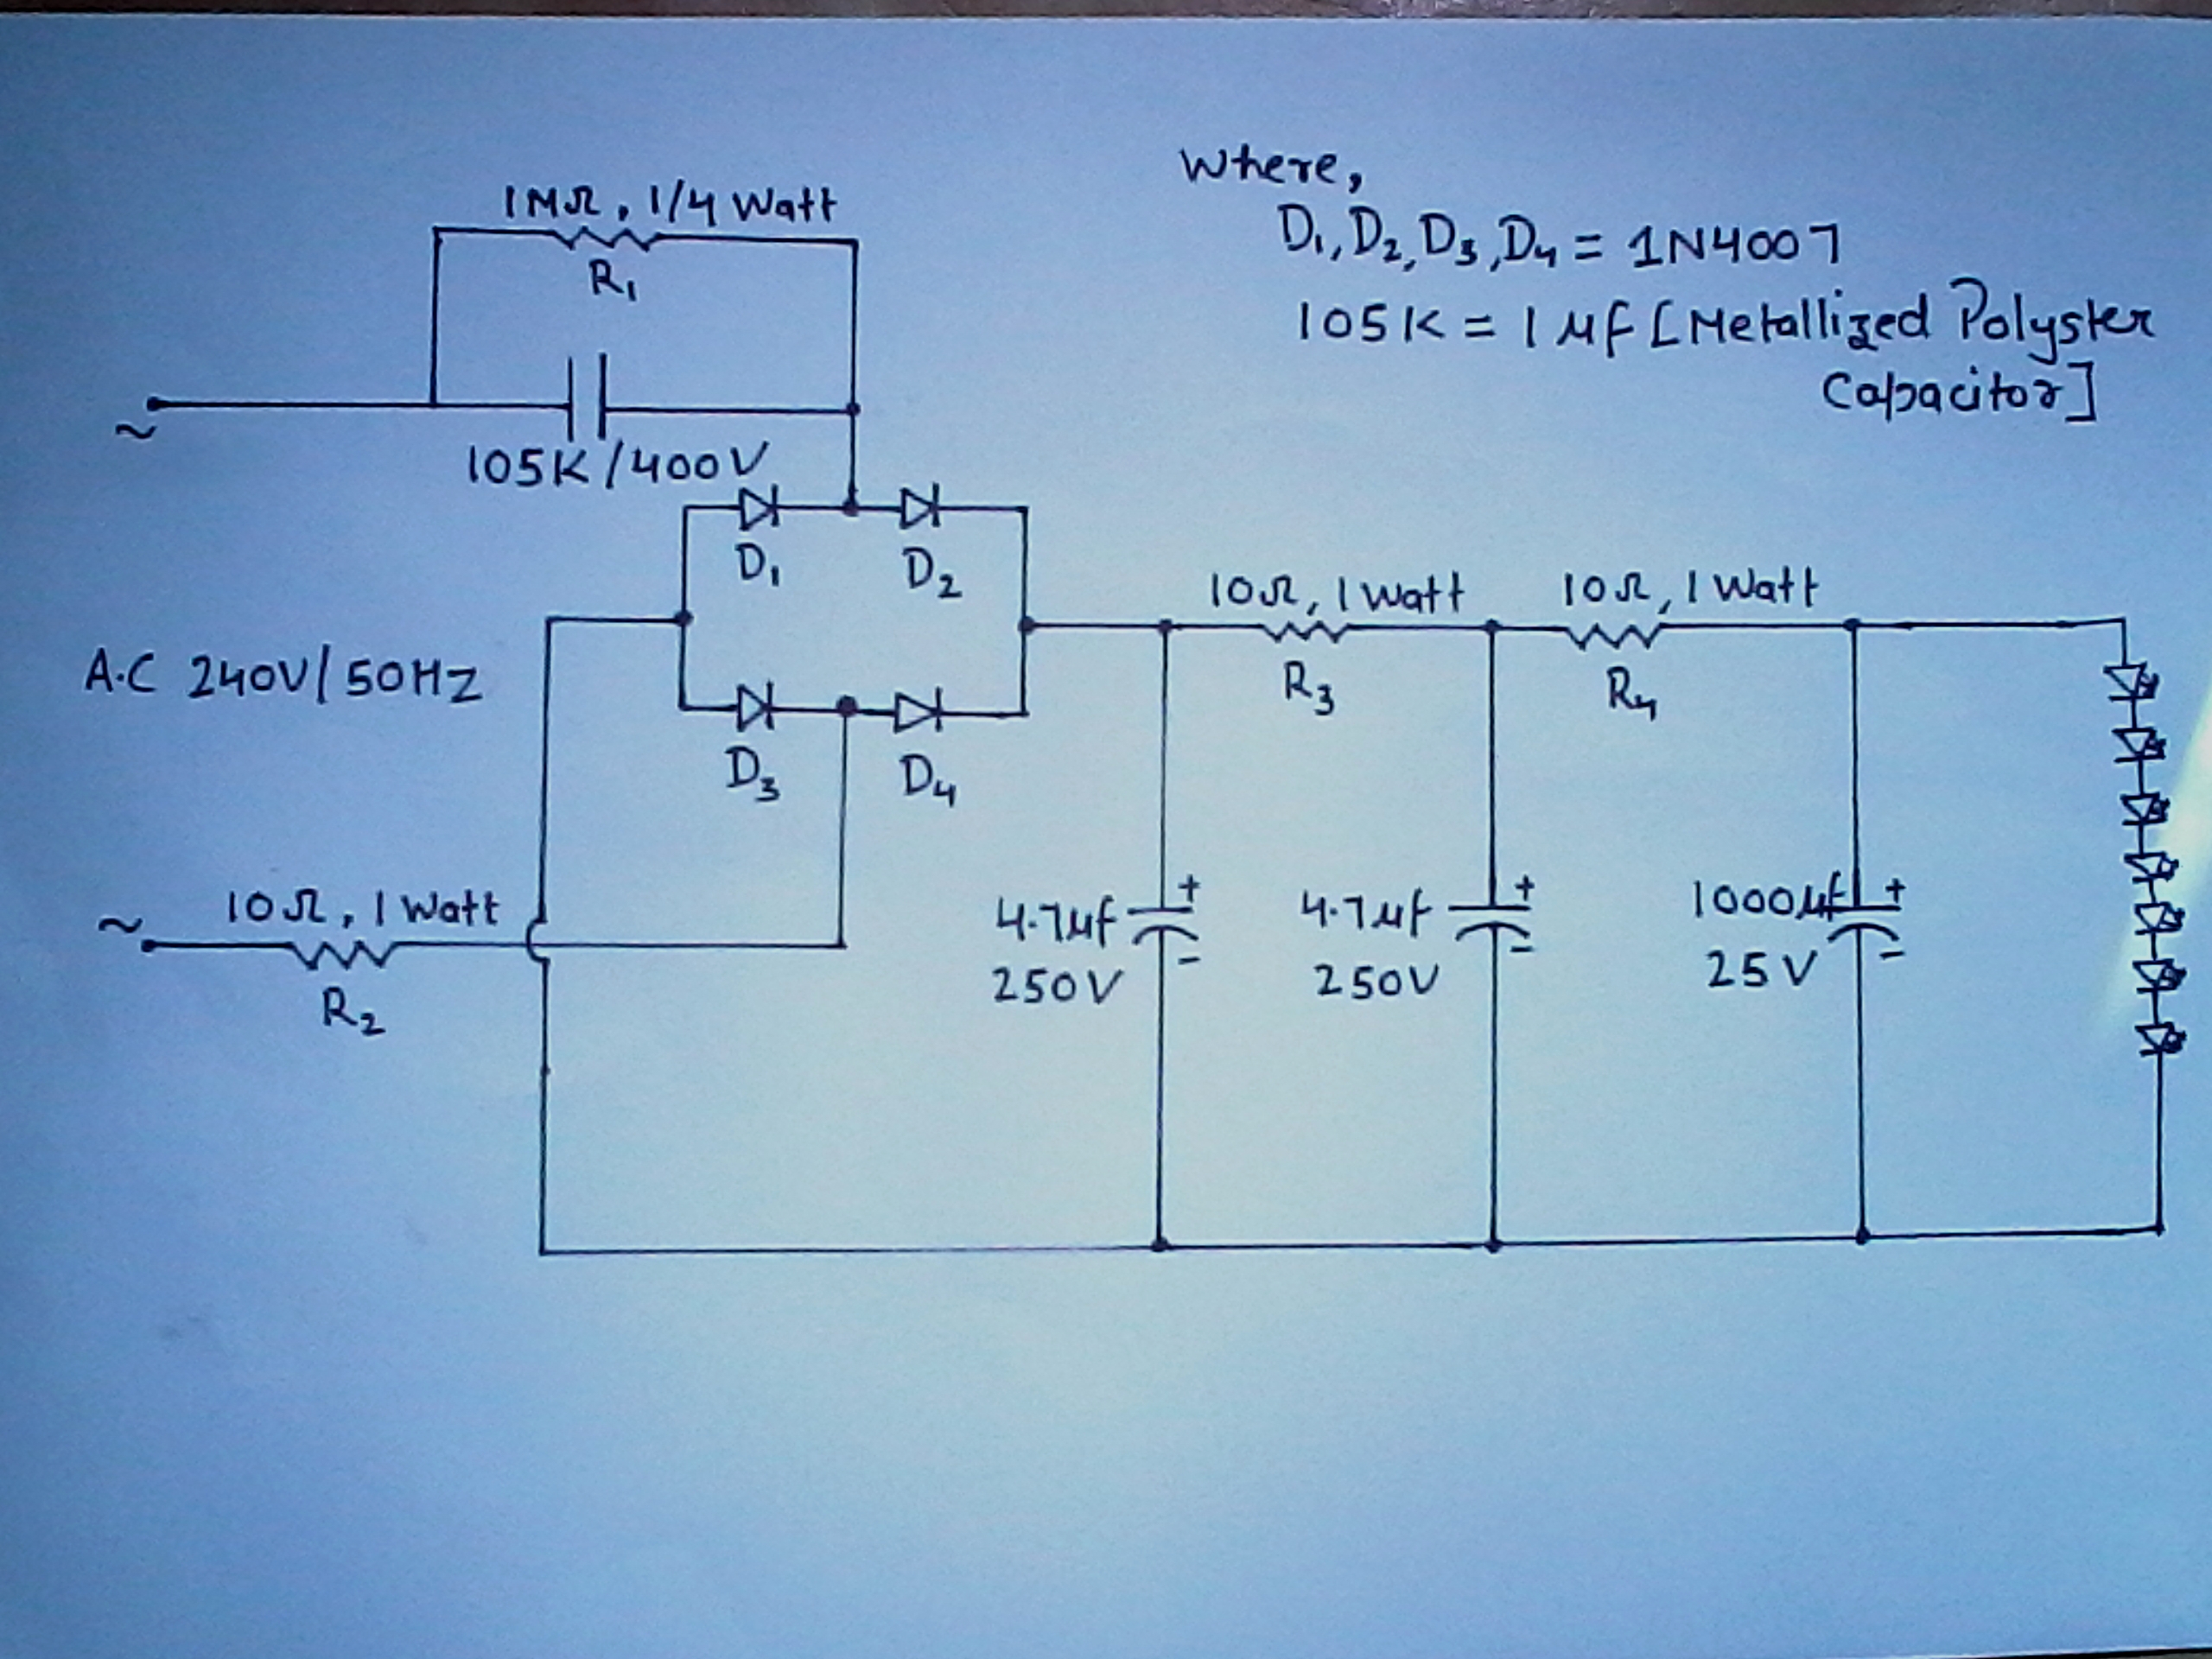 Where,
D₁, D₂, D₃, D₄ = 1N4007
105K = 1 μf [Metallized Polyster
Capacitor]
1MΩ, 1/4 Watt
R₁
~
105K/400V
D₁
D₂
A.C 240V/50Hz
D₃
D₄
10Ω, 1 Watt
R₃
10Ω, 1 Watt
R₄
~
10Ω, 1 Watt
R₂
4.7μf
250V
+
-
4.7μf
250V
+
-
1000μf
25V
+
-